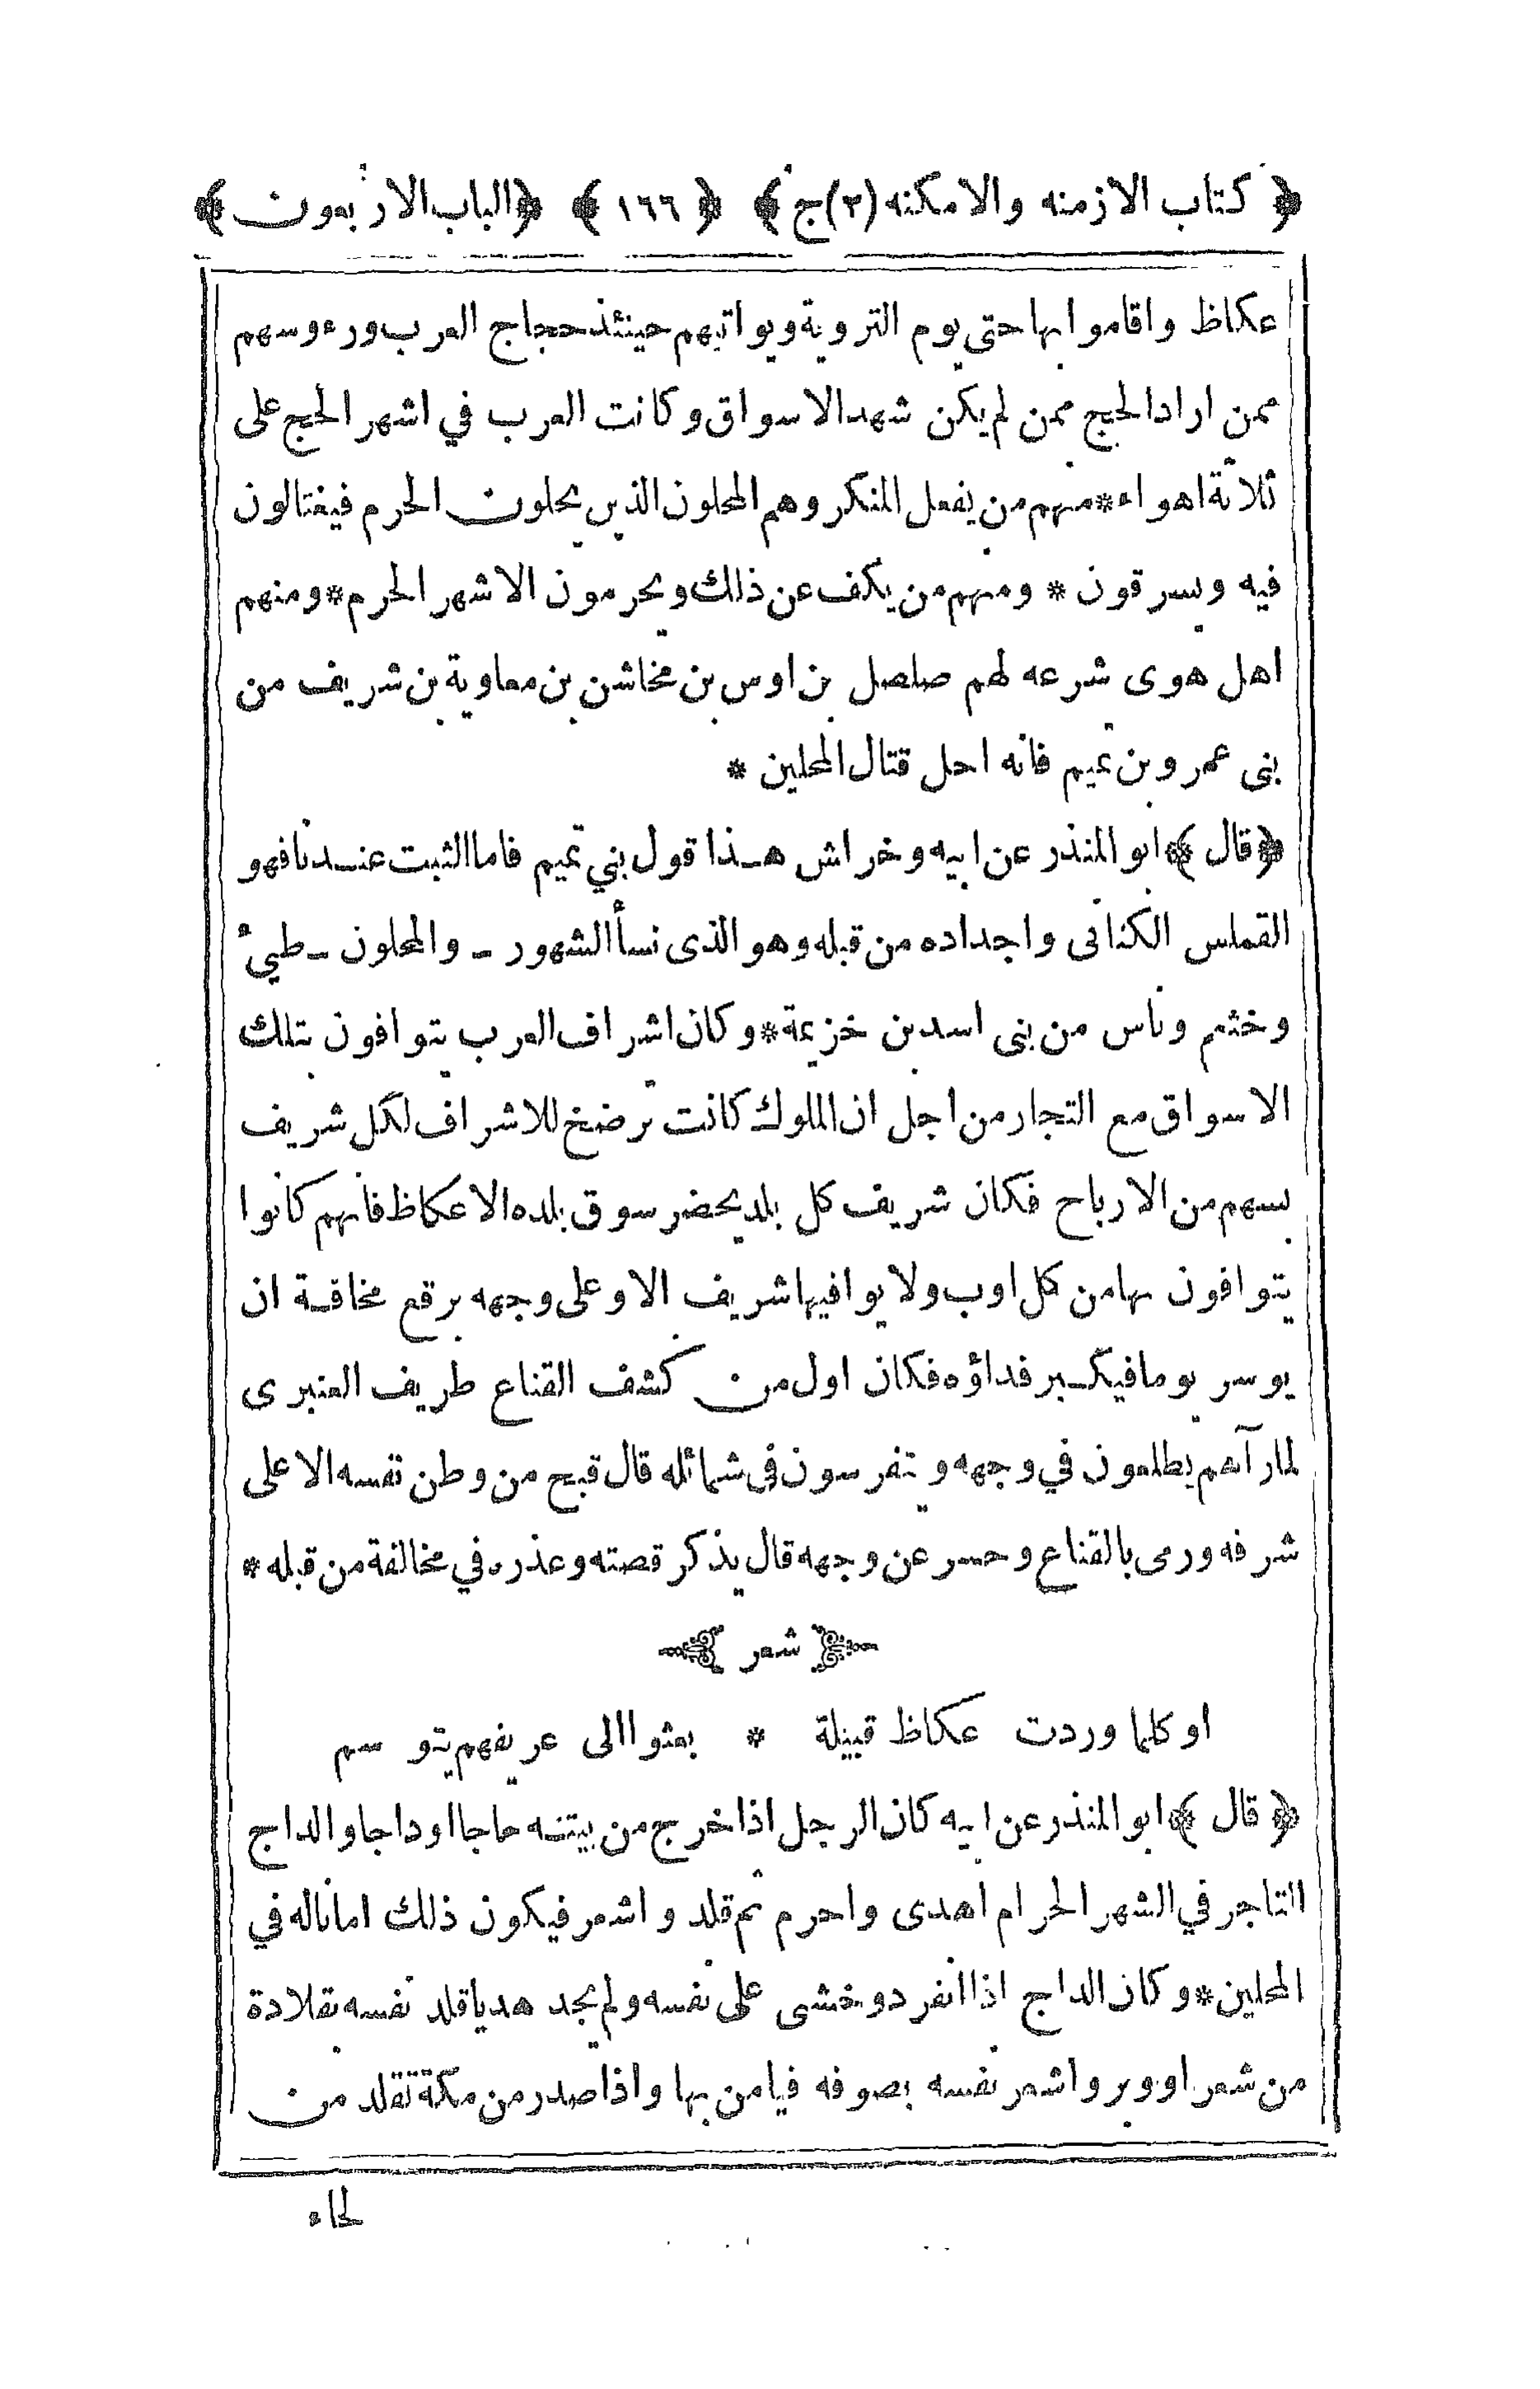 ﴿ كتاب الازمنه والامكنه (٢) ج ﴾ ﴿ ١٦٦ ﴾ ﴿ الباب الاربعون ﴾
عكاظ واقاموا بها حتى يوم التروية ويوافيهم حينئذ حجاج العرب ورءوسهم
ممن اراد الحج ممن لم يكن شهد الاسواق وكانت العرب في اشهر الحج على
ثلاثة اهواء * منهم من يفعل المنكر وهم المحلون الذين يحلون الحرم فيغتالون
فيه ويسرقون * ومنهم من يكف عن ذلك ويحرمون الاشهر الحرم * ومنهم
اهل هوى شرعه لهم صلصل بن اوس بن مخاشن بن معاوية بن شريف من
بنى عمرو بن تميم فانه احل قتال المحلين *
﴿ قال ﴾ ابو المنذر عن ابيه وخراش هذا قول بني تميم فاما الثبت عندنا فهو
القملس الكنانى واجداده من قبله وهو الذى نسأ الشهور ــ والمحلون ــ طيئ
وخثعم وناس من بنى اسد بن خزيمة * وكان اشراف العرب يتوافون بتلك
الاسواق مع التجار من اجل ان الملوك كانت ترضخ للاشراف لكل شريف
بسهم من الارباح فكان شريف كل بلد يحضر سوق بلده الا عكاظ فانهم كانوا
يتوافون بها من كل اوب ولا يوافيها شريف الا وعلى وجهه برقع مخافة ان
يوسر يوما فيكبر فداؤه فكان اول من كشف القناع طريف العنبرى
لما رآهم يطلعون في وجهه ويتفرسون في شمائله قال قبح من وطن نفسه الا على
شرفه ورمى بالقناع وحسر عن وجهه قال يذكر قصته وعذره في مخالفة من قبله *
شعر
او كلما وردت عكاظ قبيلة * بعثوا الى عريفهم يتوسم
﴿ قال ﴾ ابو المنذر عن ابيه كان الرجل اذا خرج من بيته حاجا او داجا والداج
التاجر في الشهر الحرام اهدى واحرم ثم قلد واشعر فيكون ذلك امانا له في
المحلين * وكان الداج اذا انفرد وخشى على نفسه ولم يجد هديا قلد نفسه بقلادة
من شعر او وبر واشعر نفسه بصوفه فيامن بها واذا صدر من مكة تقلد من
لحاء